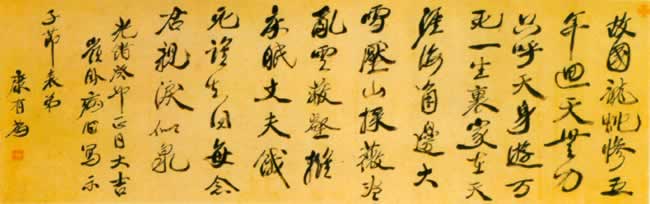 故國龍蛇慘五
年迴天無力
只呼天身遊万
死一生裏家在天
涯海角邊大
雪壓山採薇
亂雲擁
床眠丈夫餓
死每念
君親淚似泉
光緒癸卯正月大吉
嶺臥病寫示
子節表弟
康有為